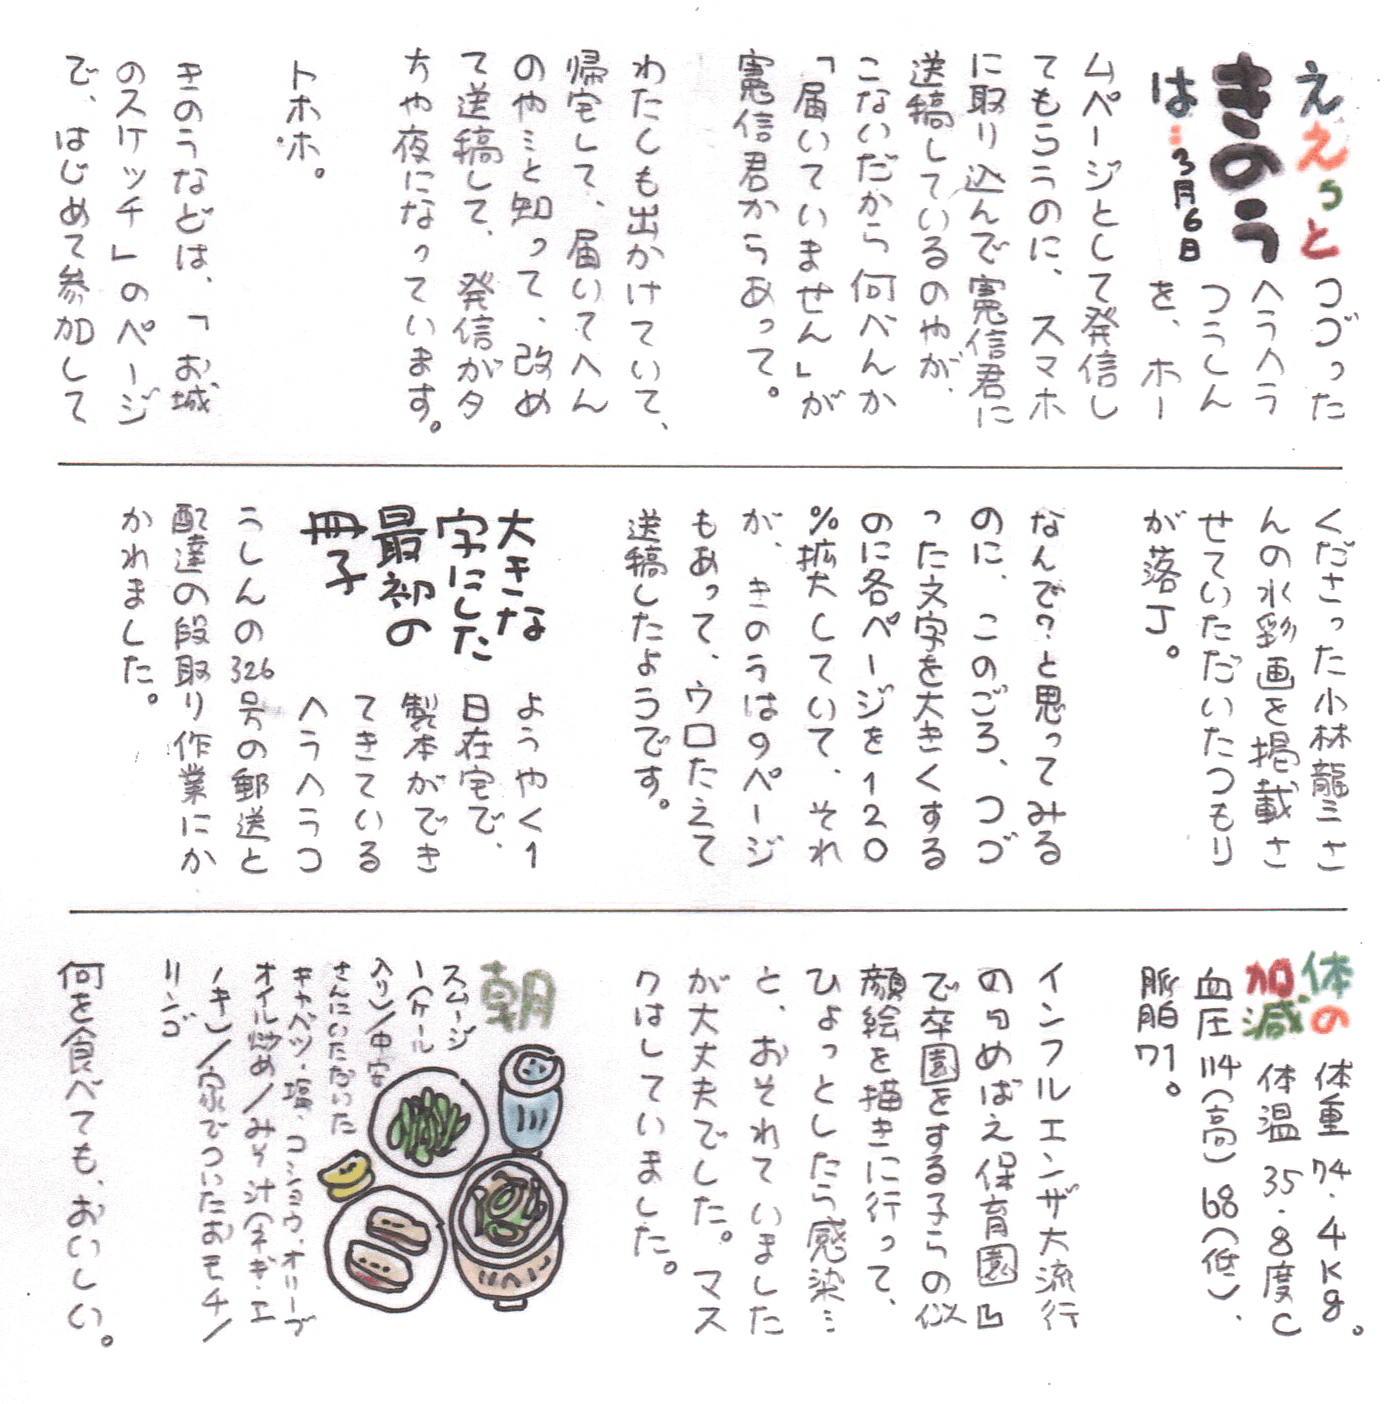 ええっと
きのう
は…3月6日
つづった
ヘラヘラ
つうしん
を、ホー
ムページとして発信し
てもらうのに、スマホ
に取り込んで憲信君に
送稿しているのやが、
こないだから何べんか
「届いていません」が
憲信君からあって。
わたしも出かけていて、
帰宅して、届いてへん
のや…と知って、改め
て送稿して、発信が夕
方や夜になっています。
トホホ。
きのうなどは、「お城
のスケッチ」のページ
で、はじめて参加して
くださった小林龍三さ
んの水彩画を掲載さ
せていただいたつもり
が落丁。
なんで?と思ってみる
のに、このごろ、つづ
った文字を大きくする
のに各ページを120
%拡大していて、それ
が、きのうは9ページ
もあって、ウロたえて
送稿したようです。
大きな
字にした
最初の
冊子
ようやく1
日在宅で、
製本ができ
てきている
ヘラヘラつ
うしんの326号の郵送と
配達の段取り作業にか
かれました。
体の
加減
体重 74.4kg。
体温 35.8度C
血圧 114(高) 68(低)、
脈拍 71。
インフルエンザ大流行
の『めばえ保育園』
で卒園をする子らの似
顔絵を描きに行って、
ひょっとしたら感染…
と、おそれていました
が大丈夫でした。マス
クはしていました。
朝
スムージ
ー(ケール
入り)/中安
さんにいただいた
キャベツ・塩、コショウ、オリーブ
オイル炒め/みそ汁(ネギ・エ
ノキ)/家でついたおモチ/
リンゴ
何を食べても、おいしい。